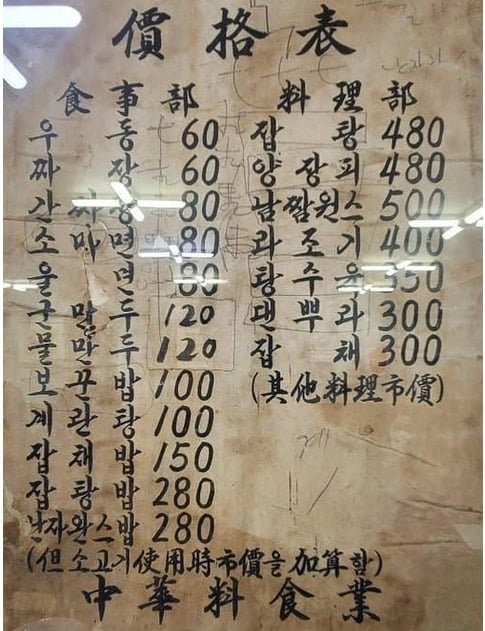 價格表
食事部
우동 60
짜장 60
간짜장 80
소마면 80
울면 80
군만두 120
물만두 120
보끈밥 100
계란탕 100
잡채밥 150
잡탕밥 280
난자완스밥 280
(但 소고기使用時市價을 加算함)
料理部
잡탕 480
양장피 480
남짤원스 500
라조기 400
탕수육 350
댄뿌라 300
잡채 300
(其他料理市價)
中華料食業